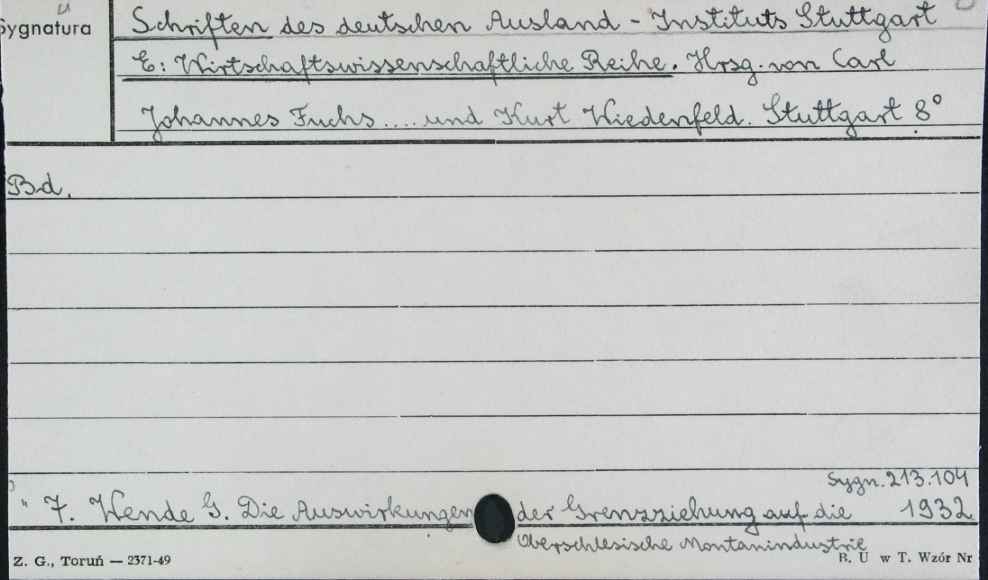 Sygnatura
Schriften des deutschen Ausland - Instituts Stuttgart
E: Wirtschaftswissenschaftliche Reihe. Hrsg. von Carl
Johannes Fuchs .... und Kurt Wiedenfeld. Stuttgart 8°
Bd.
Sygn. 213.104
" 7. Wende G. Die Auswirkungen der Grenzziehung auf die 1932
Oberschlesische Montanindustrie
Z. G., Toruń — 2371-49
B. U w T. Wzór Nr